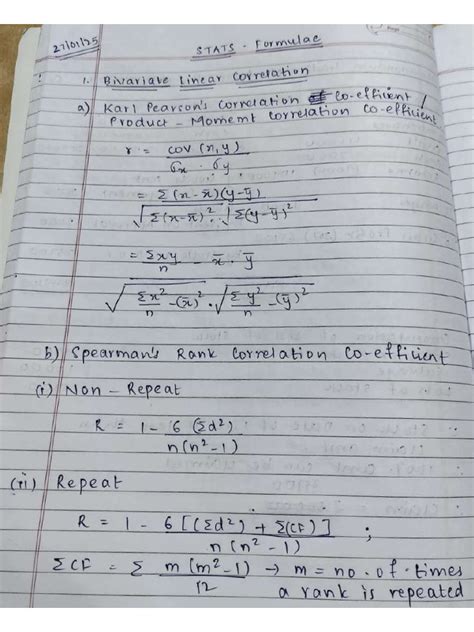 27/01/25
STATS - Formulae
1. Bivariate Linear Correlation
a) Karl Pearson's Correlation Co-efficient /
Product - Moment Correlation Co-efficient
r = cov (x, y) / σx . σy
= Σ (x - x̄) (y - ȳ) / √Σ(x - x̄)² . √Σ(y - ȳ)²
= Σxy/n - x̄ . ȳ / √(Σx²/n - (x̄)²) . √(Σy²/n - (ȳ)²)
b) Spearman's Rank Correlation Co-efficient
(i) Non - Repeat
R = 1 - 6 (Σd²) / n(n² - 1)
(ii) Repeat
R = 1 - 6 [(Σd²) + Σ(CF)] / n (n² - 1) ;
ΣCF = Σ m (m² - 1) / 12 → m = no. of times
a rank is repeated